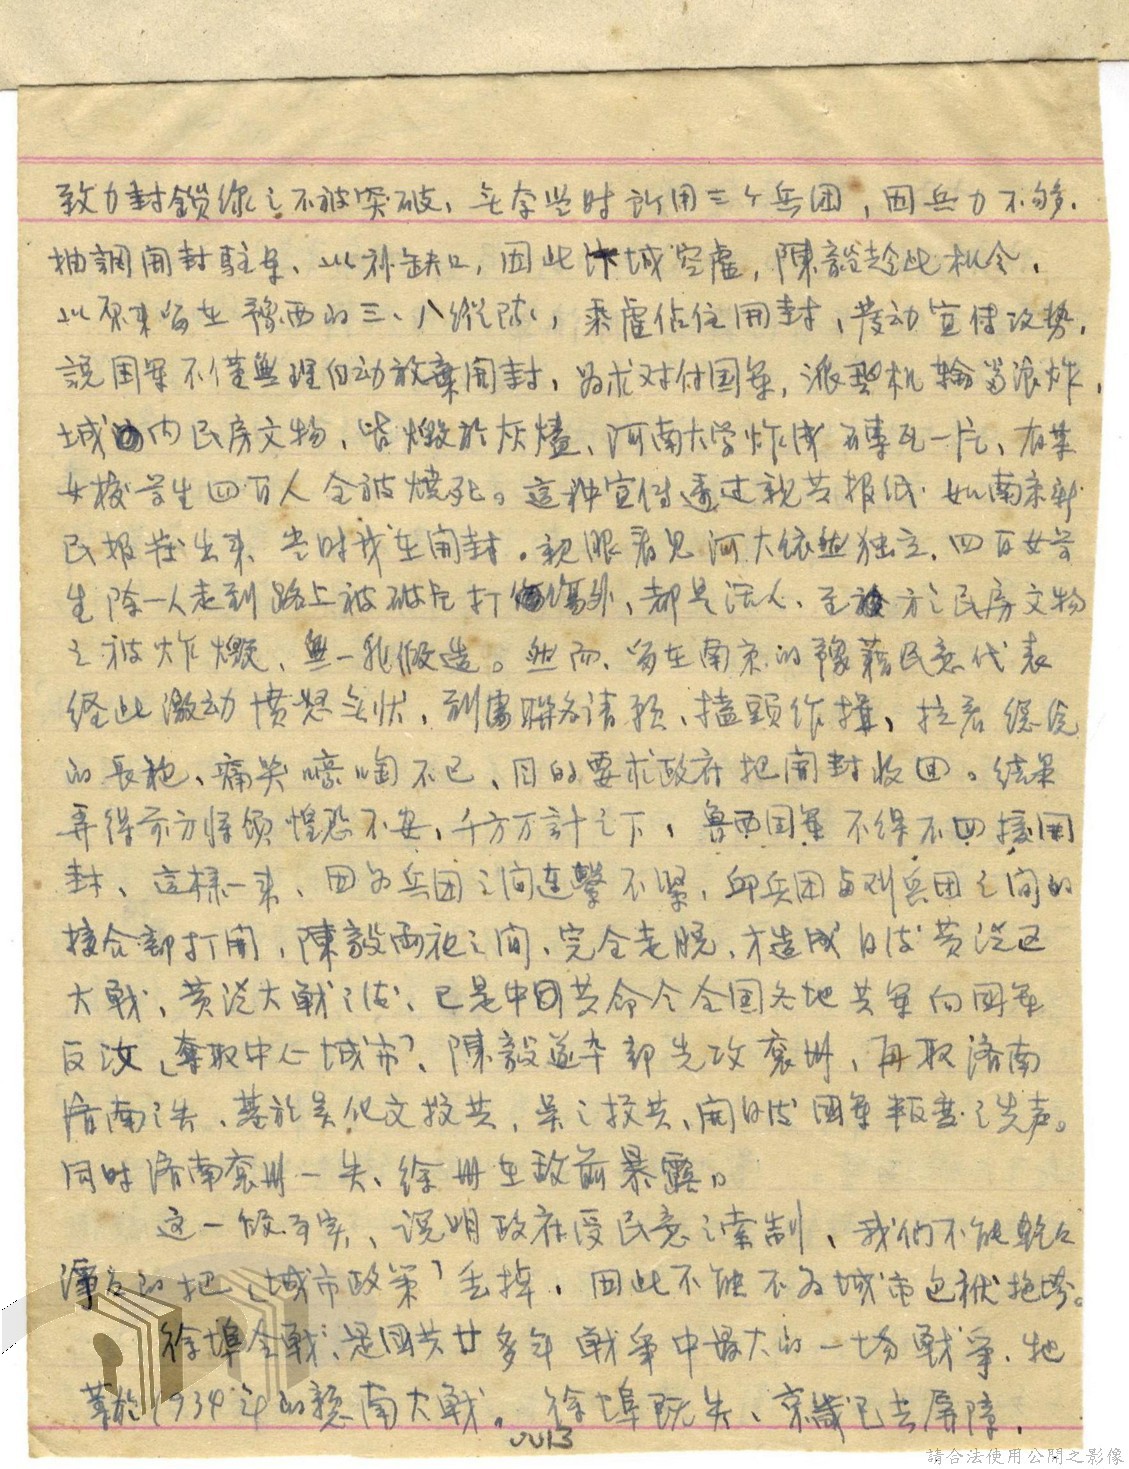 致力封鎖線之不被突破、無奈當时祇用三个兵团，因兵力不够.
抽調開封駐军、以补缺口，因此汴城空虛，陳毅趁此机会.
以原来留在豫西的三、八縱隊，乘虛佔住開封，發动宣传攻势.
說国军不僅無理自动放棄開封，為求对付国军，派 机輪番濫炸.
城内民房文物，皆燬於灰燼、河南大学炸成磚瓦一片、有某
女校学生四百人全被燒死。這种宣传透过親共报纸如南京新
民报登出来、当时我在開封。親眼看見河大依然独立.四百女学
生除一人走到路上被破片打傷外、都是活人、至 方之民房文物
之被炸燬、無一非假造。然而、留在南京的豫籍民意代表
经此激动憤怒無狀，到處联名请願、磕頭作揖，拉着總統
的長袍、痛哭嚎啕不已、目的要求政府把開封收回。结果
弄得前方将领惶恐不安，千方万計之下，魯西国军不得不回援開
封、這樣一来、因为兵团之间连繫不緊，邱兵团与刘兵团之间的
接合部打開，陳毅 之间、完全走脱、才造成日後黄泛区
大戰，黄泛大戰之後、已是中国共命令全国各地共军向国军
反攻「奪取中心城市」、陳毅遂率部先攻袞州、再取濟南
濟南之失、基於吴化文投共，吴之投共、開日後國军叛变之先声。
同时濟南袞州一失、徐州在敌前暴露。
这一段事实、说明政府受民意之牽制、我们不能乾乾
淨淨的把「城市政策」丢掉，因此不能不为城市包袱拖垮。
徐埠会戰、是國共廿多年戰爭中最大的一場戰爭.把
基於1934年的 南大戰。徐埠既失、京畿已去屏障.
0013
請合法使用公開之影像